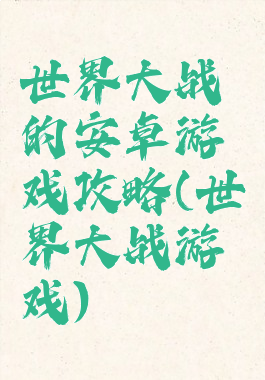 世界大战
的安卓游
戏攻略(世
界大战游
戏)